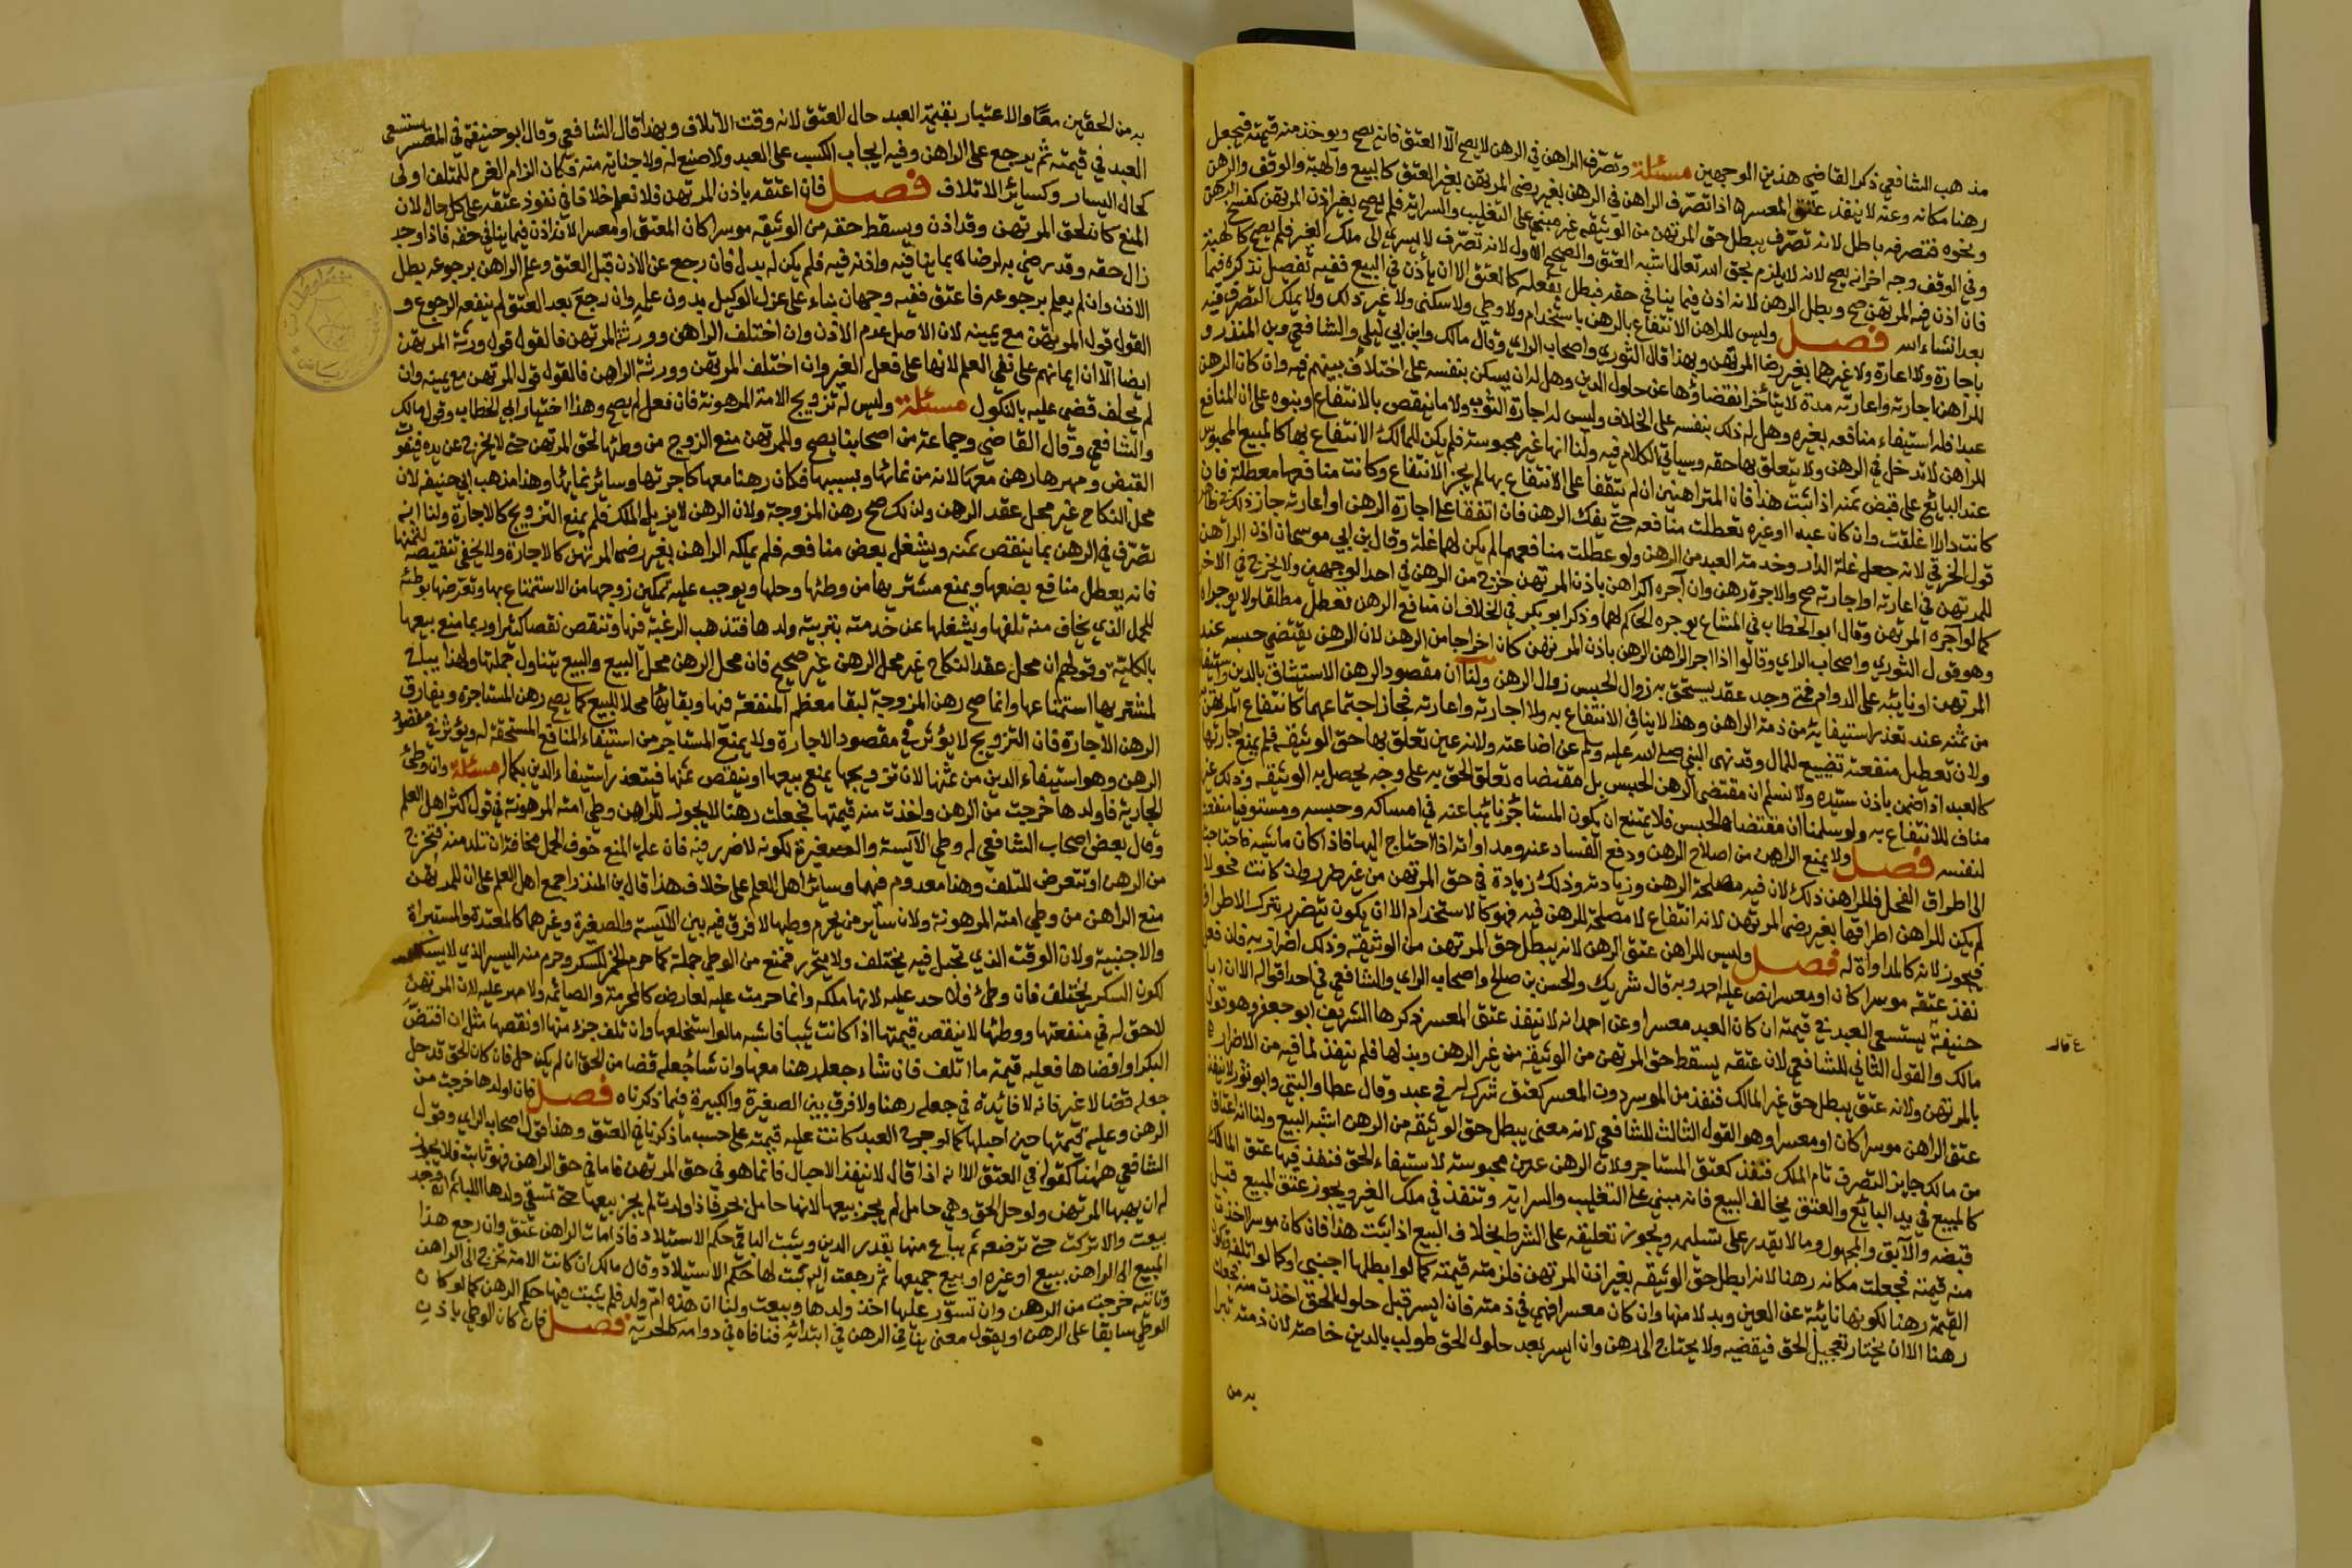 مذهب الشافعي ذكر القاضي هذين الوجهين مسئلة وتصرف الراهن في الرهن لا يصح الا العتق فانه يصح ويوخذ منه قيمته فيجعل
رهنا مكانه وعنه لا ينفذ عتق المعسر اذا تصرف الراهن في الرهن بغير رضى المرتهن بغير العتق كالبيع والهبة والوقف والرهن
ونحوه فتصرفه باطل لانه تصرف يبطل حق المرتهن من الوثيقه غير مبني على التغليب والسراية فلم يصح بغير اذن المرتهن كفسخ الرهن
وفي الوقف وجه اخر انه يصح لانه لا يلزم لحق الله تعالى اشبه العتق والصحيح الاول لانه تصرف لا يسري الى ملك الغير فلم يصح كالهبة
فان اذن فيه المرتهن صح وبطل الرهن لانه اذن فيما ينافي حقه فبطل بفعله كالعتق الا ان ياذن في البيع ففيه تفصيل نذكره فيما
بعد انشاء الله فصل وليس للراهن الانتفاع بالرهن باستخدام ولا وطي ولا سكنى ولا غير ذلك ولا يملك التصرف فيه
باجارة ولا اعارة ولا غيرهما بغير رضا المرتهن وبهذا قال الثوري واصحاب الراي وقال مالك وابن ابي ليلى والشافعي وبن المنذر و
للراهن اجارته واعارته مدة لا يتاخر انقضاؤها عن حلول الدين وهل له ان يسكن بنفسه على اختلاف بينهم فيه وان كان الرهن
عبدا فله استيفاء منافعه بغيره وهل له ذلك بنفسه على الخلاف وليس له اجارة الثوب ولا ما ينقص بالانتفاع وبنوه على ان المنافع
للراهن لا تدخل في الرهن ولا يتعلق بها حقه وسياتي الكلام فيه ولنا انها عين محبوسة فلم يكن للمالك الانتفاع بها كالمبيع المحبوس
عند البائع على قبض ثمنه اذا ثبت هذا فان المتراهنين ان لم يتفقا على الانتفاع بها لم يجز الانتفاع وكانت منافعها معطلة فان
كانت دارا اغلقت وان كان عبدا او غيره تعطلت منافعه حتى يفك الرهن فان اتفقا على اجارة الرهن او اعارته جاز ذلك في ظاهر
قول الخرقي لانه جعل غلة الدار وخدمة العبد من الرهن ولو عطلت منافعهما لم يكن لهما غلة وقال بن ابي موسى ان اذن الراهن
للمرتهن في اعارته او اجارته صح والاجرة رهن وان آجره الراهن باذن المرتهن خرج من الرهن في احد الوجهين ولا يخرج في الاخر
كما لو اجره المرتهن وقال ابو الخطاب في المشاع يوجره الحاكم لهما وذكر ابو بكر في الخلاف ان منافع الرهن تعطل مطلقا ولا يوجراه
وهو قول الثوري واصحاب الراي وقالوا اذا اجر الراهن الرهن باذن المرتهن كان اخراجا من الرهن لان الرهن يقتضي حبسه عند
المرتهن او نايبه على الدوام فمتى وجد عقد يستحق به زوال الحبس زال الرهن ولنا ان مقصود الرهن الاستيثاق بالدين واستيفاؤه
من ثمنه عند تعذر استيفايه من ذمة الراهن وهذا لا ينافي الانتفاع به ولا اجارته واعارته فجاز اجتماعهما كانتفاع المرتهن
ولان تعطيل منفعته تضييع للمال وقد نهى النبي صلى الله عليه وسلم عن اضاعته ولانه عين تعلق بها حق الوثيقه فلم يمنع اجارتها
كالعبد اذا ضمن باذن سيده ولا نسلم ان مقتضى الرهن الحبس بل مقتضاه تعلق الحق به على وجه يحصل به الوثيقه وذلك غير
مناف للانتفاع به ولو سلمنا ان مقتضاه الحبس فلا يمتنع ان يكون المستاجر نائبا عنه في امساكه وحبسه ومستوفيا منفعته
لنفسه فصل ولا يمنع الراهن من اصلاح الرهن ودفع الفساد عنه ومداواته اذا احتاج اليها فاذا كان ماشيه فاحتاجت
الى اطراق الفحل فللراهن ذلك لان فيه مصلحة الرهن وزيادته وذلك زيادة في حق المرتهن من غير ضرر وان كانت فحولا
لم يكن للراهن اطراقها بغير رضى المرتهن لانه انتفاع لا مصلحة للرهن فيه فهو كالاستخدام الا ان يكون يتضرر بترك الاطراق
فيجوز لانه كالمداواة له فصل وليس للراهن عتق الرهن لانه يبطل حق المرتهن من الوثيقه وذلك اضرار به فان فعل
نفذ عتقه موسرا كان او معسرا نص عليه احمد وبه قال شريك والحسن بن صالح واصحاب الراي والشافعي في احد اقواله الا ان ابا
حنيفة يستسعي العبد في قيمته ان كان العبد معسرا وعن احمد انه لا ينفذ عتق المعسر ذكرها الشريف ابو جعفر وهو قول
ع قال
مالك والقول الثاني للشافعي لان عتقه يسقط حق المرتهن من الوثيقه من غير الرهن وبدلها فلم ينفذ لما فيه من الاضرار
بالمرتهن ولانه عتق يبطل حق غير المالك فنفذ من الموسر دون المعسر كعتق شرك له في عبد وقال عطا والبتي وابو ثور لا ينفذ
عتق الراهن موسرا كان او معسرا وهو القول الثالث للشافعي لانه معنى يبطل حق الوثيقه من الرهن اشبه البيع ولنا انه اعتاق
من مالك جايز التصرف تام الملك فنفذ كعتق المستاجر ولان الرهن عين محبوسة لاستيفاء الحق فنفذ فيها عتق المالك
كالمبيع في يد البائع والعتق يخالف البيع فانه مبني على التغليب والسراية وينفذ في ملك الغير ويجوز عتق المبيع قبل
قبضه والآبق والمجهول وما لا يقدر على تسليمه ويجوز تعليقه على الشرط بخلاف البيع اذا ثبت هذا فان كان موسرا اخذت
منه قيمته فجعلت مكانه رهنا لانه ابطل حق الوثيقه بغير اذن المرتهن فلزمته قيمته كما لو ابطلها اجنبي او كما لو اتلفه وتكون
القيمة رهنا لكونها نائبة عن العين وبدلا منها وان كان معسرا فهي في ذمته فان ايسر قبل حلول الحق اخذت منه فجعلت
رهنا الا ان يختار تعجيل الحق فيقضيه ولا يحتاج الى رهن وان ايسر بعد حلول الحق طولب بالدين خاصة لان ذمته تبرا
به من
به من الحقين معا والاعتبار بقيمة العبد حال العتق لانه وقت الاتلاف وبهذا قال الشافعي وقال ابو حنيفة في المعسر يستسعى
العبد في قيمته ثم يرجع على الراهن وفيه ايجاب الكسب على العبد ولا صنع له ولا جناية منه فكان الزام الغرم للمتلف اولى
كحال اليسار وكسائر الاتلاف فصل فان اعتقه باذن المرتهن فلا نعلم خلافا في نفوذ عتقه على كل حال لان
المنع كان لحق المرتهن وقد اذن ويسقط حقه من الوثيقه موسرا كان المعتق او معسرا لانه اذن فيما ينافي حقه فاذا وجد
زال حقه وقد رضي به لرضاه بما ينافيه واذنه فيه فلم يكن له بدل فان رجع عن الاذن قبل العتق وعلم الراهن برجوعه بطل
الاذن وان لم يعلم برجوعه فاعتق ففيه وجهان بناء على عزل الوكيل بدون علمه وان رجع بعد العتق لم ينفعه الرجوع و
القول قول المرتهن مع يمينه لان الاصل عدم الاذن وان اختلف الراهن وورثة المرتهن فالقول قول ورثة المرتهن
ايضا الا ان ايمانهم على نفي العلم لانها على فعل الغير وان اختلف المرتهن وورثة الراهن فالقول قول المرتهن مع يمينه وان
لم يحلف قضي عليه بالنكول مسئلة وليس له تزويج الامة المرهونة فان فعل لم يصح وهذا اختيار ابي الخطاب وقول مالك
والشافعي وقال القاضي وجماعة من اصحابنا يصح وللمرتهن منع الزوج من وطئها لحق المرتهن حتى لا يخرج عن يده فيفوت
القبض ومهرها رهن معها لانه من نمائها وبسببها فكان رهنا معها كاجرتها وسائر نمائها وهذا مذهب ابي حنيفه لان
محل النكاح غير محل عقد الرهن ولذلك صح رهن المزوجة ولان الرهن لا يزيل الملك فلم يمنع التزويج كالاجارة ولنا انه
تصرف في الرهن بما ينقص ثمنه ويشغل بعض منافعه فلم يملكه الراهن بغير رضى المرتهن كالاجارة ولا يخفى تنقيصه لثمنها
فانه يعطل منافع بضعها ويمنع مشتريها من وطئها وحلها ويوجب عليه تمكين زوجها من الاستمتاع بها وتعرضها بوطئه
للحمل الذي يخاف منه تلفها ويشغلها عن خدمته بتربية ولدها فتذهب الرغبة فيها وتنقص نقصا كثيرا وربما منع بيعها
بالكلية وقولهم ان محل عقد النكاح غير محل الرهن غير صحيح فان محل الرهن محل البيع والبيع يتناول جملتها ولهذا يباح
لمشتريها استمتاعها وانما صح رهن المزوجة لبقا معظم المنفعة فيها وبقائها محلا للبيع كما يصح رهن المستاجرة ويفارق
الرهن الاجارة فان التزويج لا يؤثر في مقصود الاجارة ولا يمنع المستاجر من استيفاء المنافع المستحقة له ويؤثر في مقصود
الرهن وهو استيفاء الدين من ثمنها لان تزويجها يمنع بيعها او ينقص ثمنها فيتعذر استيفاء الدين بكماله مسئلة وان وطئ
الجارية فاولدها خرجت من الرهن واخذت منه قيمتها فجعلت رهنا لا يجوز للراهن وطي امته المرهونة في قول اكثر اهل العلم
وقال بعض اصحاب الشافعي له وطي الآيسة والصغيرة لكونه لا ضرر فيه فان علة المنع خوف الحمل مخافة ان تلد منه فتخرج
من الرهن او تتعرض للتلف وهذا معدوم فيهما وسائر اهل العلم على خلاف هذا قال بن المنذر اجمع اهل العلم على ان للمرتهن
منع الراهن من وطي امته المرهونة ولان سائر من يحرم وطيها لا فرق فيه بين الآيسة والصغيرة وغيرهما كالمعتدة والمستبراة
والاجنبية ولان الوقت الذي تحبل فيه يختلف ولا يتحرر فمنع من الوطي جملة كما حرم الخمر للسكر وحرم منه اليسير الذي لا يسكر
لكون السكر يختلف فان وطئ فلا حد عليه لانها ملكه وانما حرمت عليه لعارض كالمحرمة والصائمة ولا مهر عليه لان المرتهن
لا حق له في منفعتها ووطئها لا ينقص قيمتها اذا كانت ثيبا فاشبه مالو استخدمها وان تلف جزء منها او نقصها مثل ان افتض
البكر او افضاها فعليه قيمة ما اتلف فان شاء جعله رهنا معها وان شا جعله قضا من الحق ان لم يكن حل فان كان الحق قد حل
جعله قضا لا غير فانه لا فائدة في جعله رهنا ولا فرق بين الصغيرة والكبيرة فيما ذكرناه فصل فان اولدها خرجت من
الرهن وعليه قيمتها حين احبلها كما لو جرح العبد كانت عليه قيمته على حسب ما ذكرنا في العتق وهذا قول اصحاب الراي وقول
الشافعي ههنا كقوله في العتق الا انه اذا قال لا ينفذ الاحبال فانما هو في حق المرتهن فاما في حق الراهن فهو ثابت فلا يجوز
له ان يهبها المرتهن ولو حل الحق وهي حامل لم يجز بيعها لانها حامل بحر فاذا ولدت لم يجز بيعها حتى تسقي ولدها اللبا ثم ان وجد
بيعت والا تركت حتى ترضعه ثم يباع منها بقدر الدين ويثبت للباقي حكم الاستيلاد فاذا مات الراهن عتق وان رجع هذا
المبيع الى الراهن ببيع او غيره او بيع جميعها ثم رجعت اليه ثبت لها حكم الاستيلاد وقال مالك ان كانت الامة تخرج الى الراهن
وتاتيه خرجت من الرهن وان تسور عليها اخذ ولدها وبيعت ولنا ان هذه ام ولد فلم يثبت فيها حكم الرهن كما لو كان
الوطي سابقا على الرهن او يقول معنى ينافي الرهن في ابتدائه فنافاه في دوامه كالحرية فصل فان كان الوطي باذن